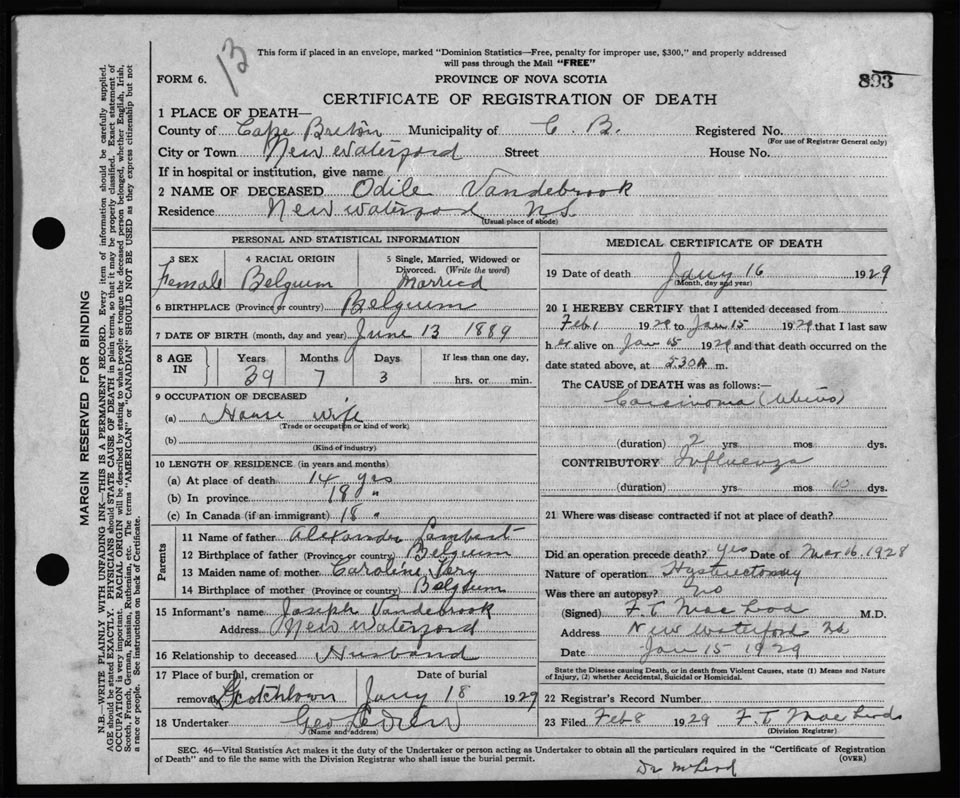 13
This form if placed in an envelope, marked "Dominion Statistics—Free, penalty for improper use, $300," and properly addressed
will pass through the Mail "FREE"
FORM 6.
PROVINCE OF NOVA SCOTIA
893
CERTIFICATE OF REGISTRATION OF DEATH
1 PLACE OF DEATH—
County of Cape Breton Municipality of C. B. Registered No.
(For use of Registrar General only)
City or Town New Waterford Street House No.
If in hospital or institution, give name
2 NAME OF DECEASED Odile Vandebrook
Residence New Waterford NS
(Usual place of abode)
PERSONAL AND STATISTICAL INFORMATION
3 SEX 4 RACIAL ORIGIN 5 Single, Married, Widowed or
Divorced. (Write the word)
Female Belgium Married
6 BIRTHPLACE (Province or country) Belgium
7 DATE OF BIRTH (month, day and year) June 13 1889
8 AGE IN Years Months Days If less than one day,
39 7 3 hrs. or min.
9 OCCUPATION OF DECEASED
(a) House wife
(Trade or occupation or kind of work)
(b)
(Kind of industry)
10 LENGTH OF RESIDENCE (in years and months)
(a) At place of death 14 yrs
(b) In province 18 "
(c) In Canada (if an immigrant) 18 "
Parents
11 Name of father Alexander Lambert
12 Birthplace of father (Province or country) Belgium
13 Maiden name of mother Caroline
14 Birthplace of mother (Province or country) Belgium
15 Informant's name Joseph Vandebrook
Address New Waterford
16 Relationship to deceased Husband
17 Place of burial, cremation or Date of burial
removal Scotchtown Jany 18 1929
18 Undertaker Geo
(Name and address)
MEDICAL CERTIFICATE OF DEATH
19 Date of death Jany 16 1929
(Month, day and year)
20 I HEREBY CERTIFY that I attended deceased from
Feb 1 1929 to Jan 15 1929 that I last saw
her alive on Jan 15 1929 and that death occurred on the
date stated above, at 5.30 A m.
The CAUSE of DEATH was as follows:—
Carcinoma (Uterus)
(duration) 2 yrs. mos. dys.
CONTRIBUTORY Influenza
(duration) yrs. mos. 10 dys.
21 Where was disease contracted if not at place of death?
Did an operation precede death? yes Date of Mar 16. 1928
Nature of operation Hystrectomy
Was there an autopsy? no
(Signed) F. T. MacLeod M.D.
Address New Waterford NS
Date Jan 15 1929
State the Disease causing Death, or in death from Violent Causes, state (1) Means and Nature
of Injury, (2) whether Accidental, Suicidal or Homicidal.
22 Registrar's Record Number
23 Filed Feb 8 1929 F. T. MacLeod
(Division Registrar)
SEC. 46—Vital Statistics Act makes it the duty of the Undertaker or person acting as Undertaker to obtain all the particulars required in the "Certificate of Registration
of Death" and to file the same with the Division Registrar who shall issue the burial permit.
(OVER)
Dr McLeod
MARGIN RESERVED FOR BINDING
N.B.—WRITE PLAINLY WITH UNFADING INK—THIS IS A PERMANENT RECORD. Every item of information should be carefully supplied.
AGE should be stated EXACTLY. PHYSICIANS should STATE CAUSE OF DEATH in plain terms, so that it may be properly classified. Exact statement of
OCCUPATION is very important. RACIAL ORIGIN will be described by stating to what people or tongue the deceased person belonged, whether English, Irish,
Scotch, French, German, Russian, Ruthenian, etc. The terms "AMERICAN" or "CANADIAN" SHOULD NOT BE USED as they express citizenship but not
a race or people. See instructions on back of Certificate.